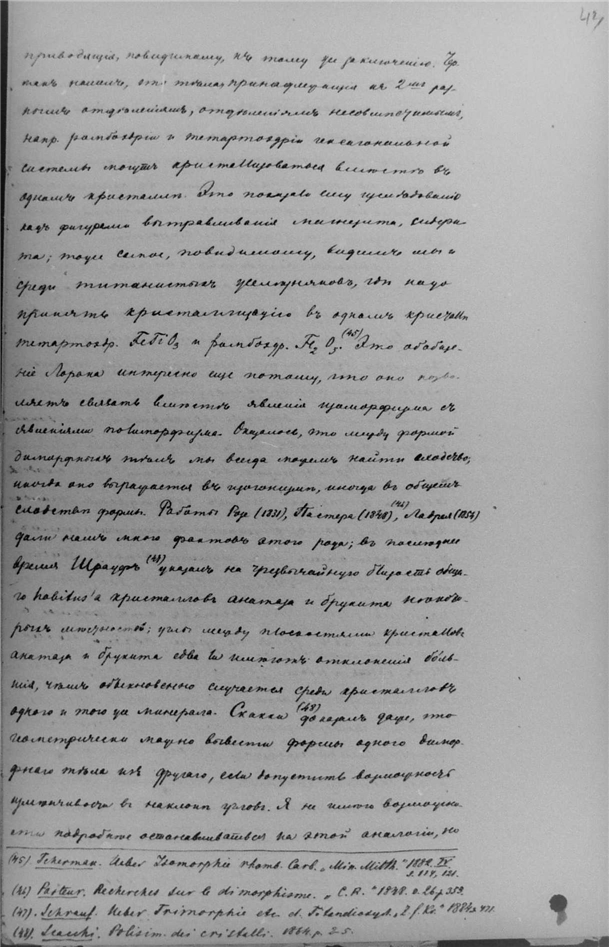 42
приводящія, повидимому, къ тому же заключенію. Чер
макъ показалъ, что тѣла, принадлежащія къ 2мъ раз
нымъ отдѣленіямъ, отдѣленіямъ несовмѣстимымъ,
напр. ромбоэдріи и тетартоэдріи гексагональной
системы могутъ кристаллизоваться вмѣстѣ въ
одномъ кристаллѣ. Это показало ему изслѣдованіе
надъ фигурами вытравливанія магнезита, сидери
та; тоже самое, повидимому, видимъ мы и
среди титанистыхъ желѣзняковъ, гдѣ надо
принять кристаллизацію въ одномъ кристаллѣ
тетартоэдр. FeTiO3 и ромбоэдр. Fe2O3.(45) Это обобще-
ніе важно и интересно еще потому, что оно позво
ляетъ связать вмѣстѣ явленія изоморфизма съ
явленіями полиморфизма. Оказалось, что между формой
диморфныхъ тѣлъ мы всегда можемъ найти сходство;
иногда оно выражается въ изогонизмѣ, иногда въ общемъ
сходствѣ формы. Работы Розе (1831), Пастера (1848)(46), Лорана (1854)
дали намъ много фактовъ этого рода; въ последнее
время Шрауфъ(47) указалъ на чрезвычайную близость обща-
го habitus'а кристалловъ анатаза и брукита нѣкото-
рыхъ мѣстностей; углы между плоскостями кристалловъ
анатаза и брукита едва ли имѣютъ отклоненія боль-
шія, чѣмъ обыкновенно случается среди кристалловъ
одного и того же минерала. Скакки(48) доказалъ даже, что
геометрически можно вывести формы одного димор-
фнаго тѣла изъ другаго, если допустить возможность
измѣнчивости въ наклонѣ угловъ. Я не имѣю возможно-
сти подробнѣе останавливаться на этой аналогіи, но
(45) Tschermak. Ueber Isomorphie rhomb. Carb. „Min. Mitth." 1882. IV
S. 117, 121.
(46) Pasteur. Recherches sur le dimorphisme. „C. R." 1848. v. 26 p. 353.
(47) Schrauf. Ueber Trimorphie etc. d. Titandioxyd. „Z. f. Kr." 1884
(48) Scacchi. Polisim. dei cristalli. 1864. p. 25.